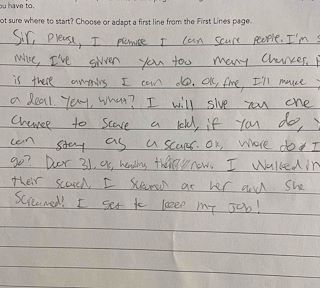 ou have to.
ot sure where to start? Choose or adapt a first line from the First Lines page.
Sir, please, I promise I can scare people. I'm s
I've given you too many chances.
is there I can do. Ok, fine, I'll make
a deal. Yay, what? I will give you one
chance to scare a kid, if you do, y
can stay as a scarer. Ok, where do I
go? Door 31, ok, heading there now. I walked in
their scared. I screamed at her and she
screamed! I get to keep my job!